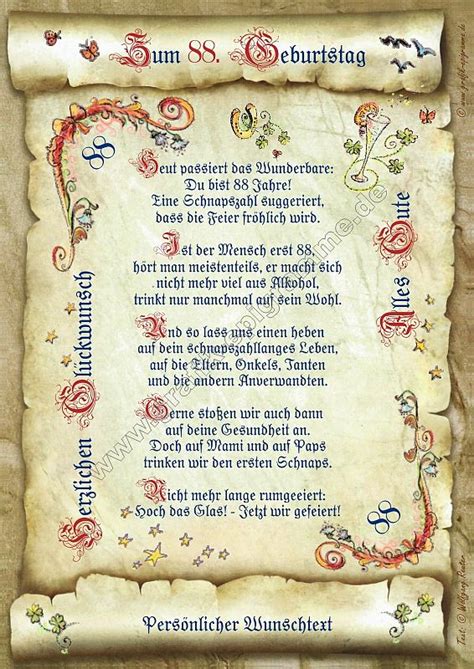 Zum 88. Geburtstag
88
Heut passiert das Wunderbare:
Du bist 88 Jahre!
Eine Schnapszahl suggeriert,
dass die Feier fröhlich wird.
Ist der Mensch erst 88,
hört man meistenteils, er macht sich
nicht mehr viel aus Alkohol,
trinkt nur manchmal auf sein Wohl.
Und so lass uns einen heben
auf dein schnapszahllanges Leben,
auf die Eltern, Onkels, Tanten
und die andern Anverwandten.
Gerne stoßen wir auch dann
auf deine Gesundheit an.
Doch auf Mami und auf Paps
trinken wir den ersten Schnaps.
Nicht mehr lange rumgeeiert:
Hoch das Glas! - Jetzt wir gefeiert!
Herzlichen Glückwunsch
Alles Gute
88
Persönlicher Wunschtext
Text: © Wolfgang